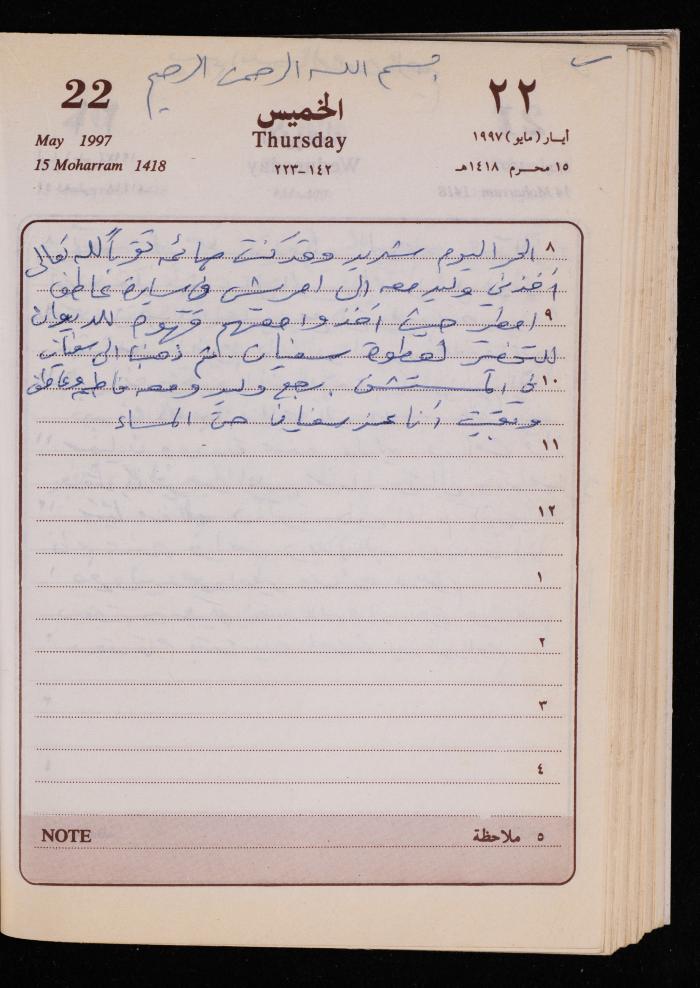 بسم الله الرحمن الرحيم
22
الخميس
٢٢
May 1997
Thursday
أيار (مايو) ١٩٩٧
15 Moharram 1418
١٤٢-٢٢٣
١٥ محرم ١٤١٨هـ
٨ الحر اليوم شديد وقد كنت صائمة تقرباً لله تعالى
أخذني وليد معه الى في سيارة عاطف
٩ احضر حيث أخذوا معهم قهوة للديوان
للتحضير لعطوة سفيان. ثم ذهبنا الى سفيان
١٠ في المستشفى. رجع وليد ومعه فاطمة وعاطف
وبقيت أنا عند سفيان حتى المساء
١١
١٢
١
٢
٣
٤
NOTE
٥ ملاحظة